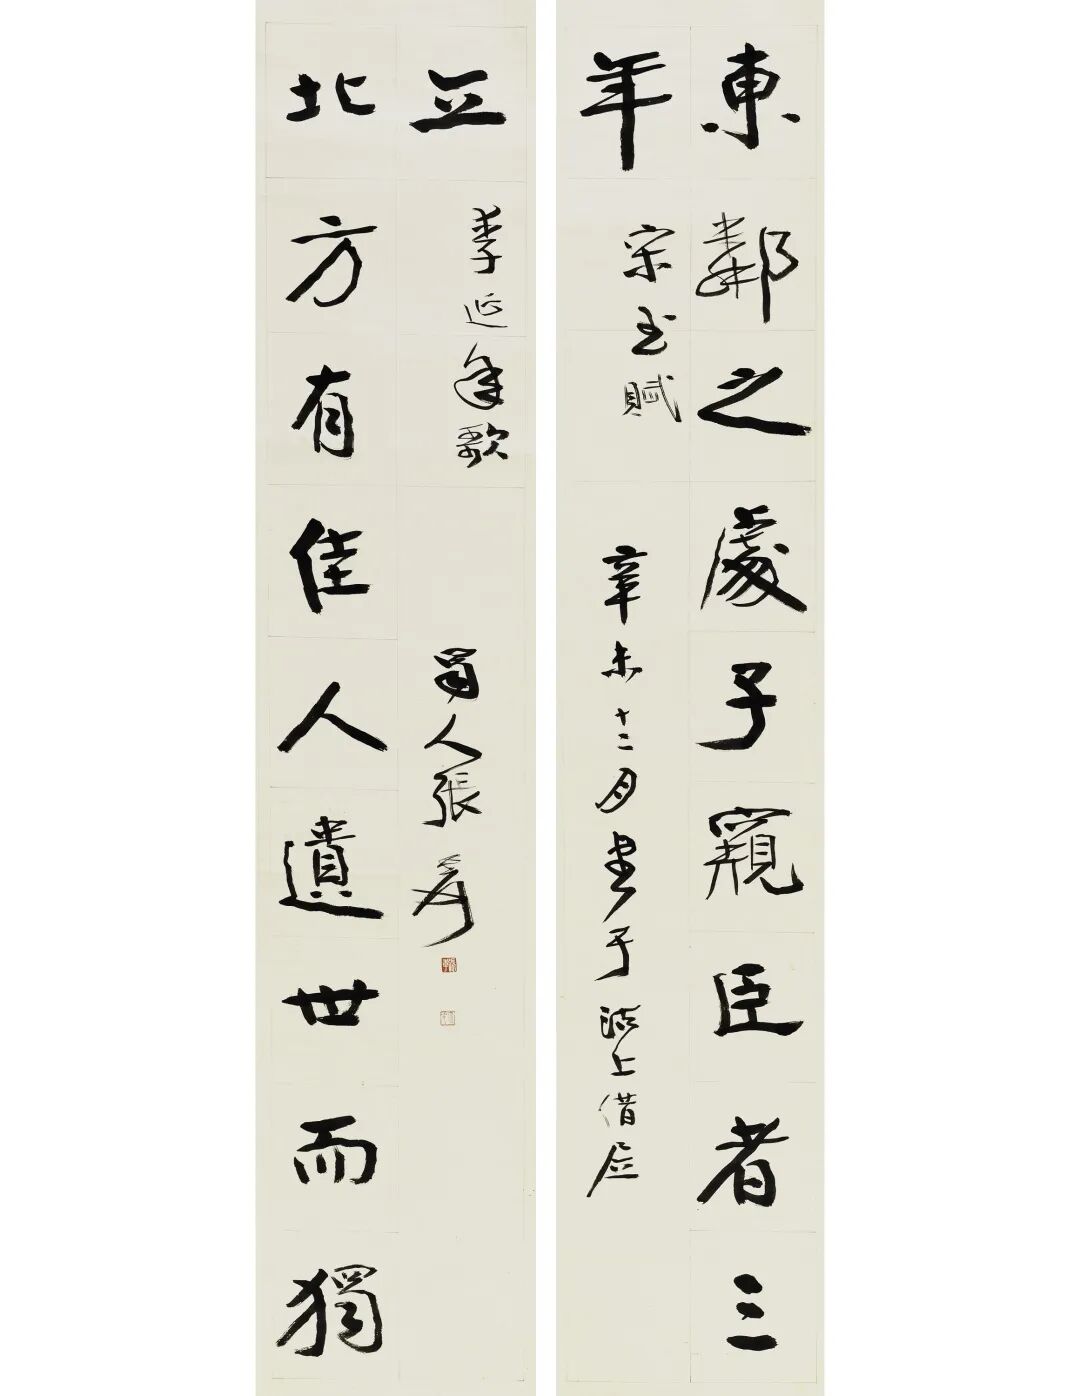 東鄰之處子窺臣者三
年
宋玉賦
辛未十二月書于 上借
北方有佳人遺世而獨
立
李延年歌
蜀人張爰